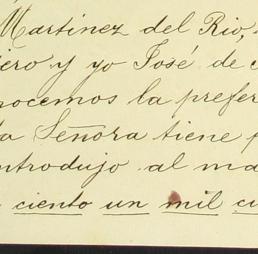 Martinez del Rio,
ero y yo José de
nocemos la prefer
ta Señora tiene
ntrodujo al ma
ciento un mil cu